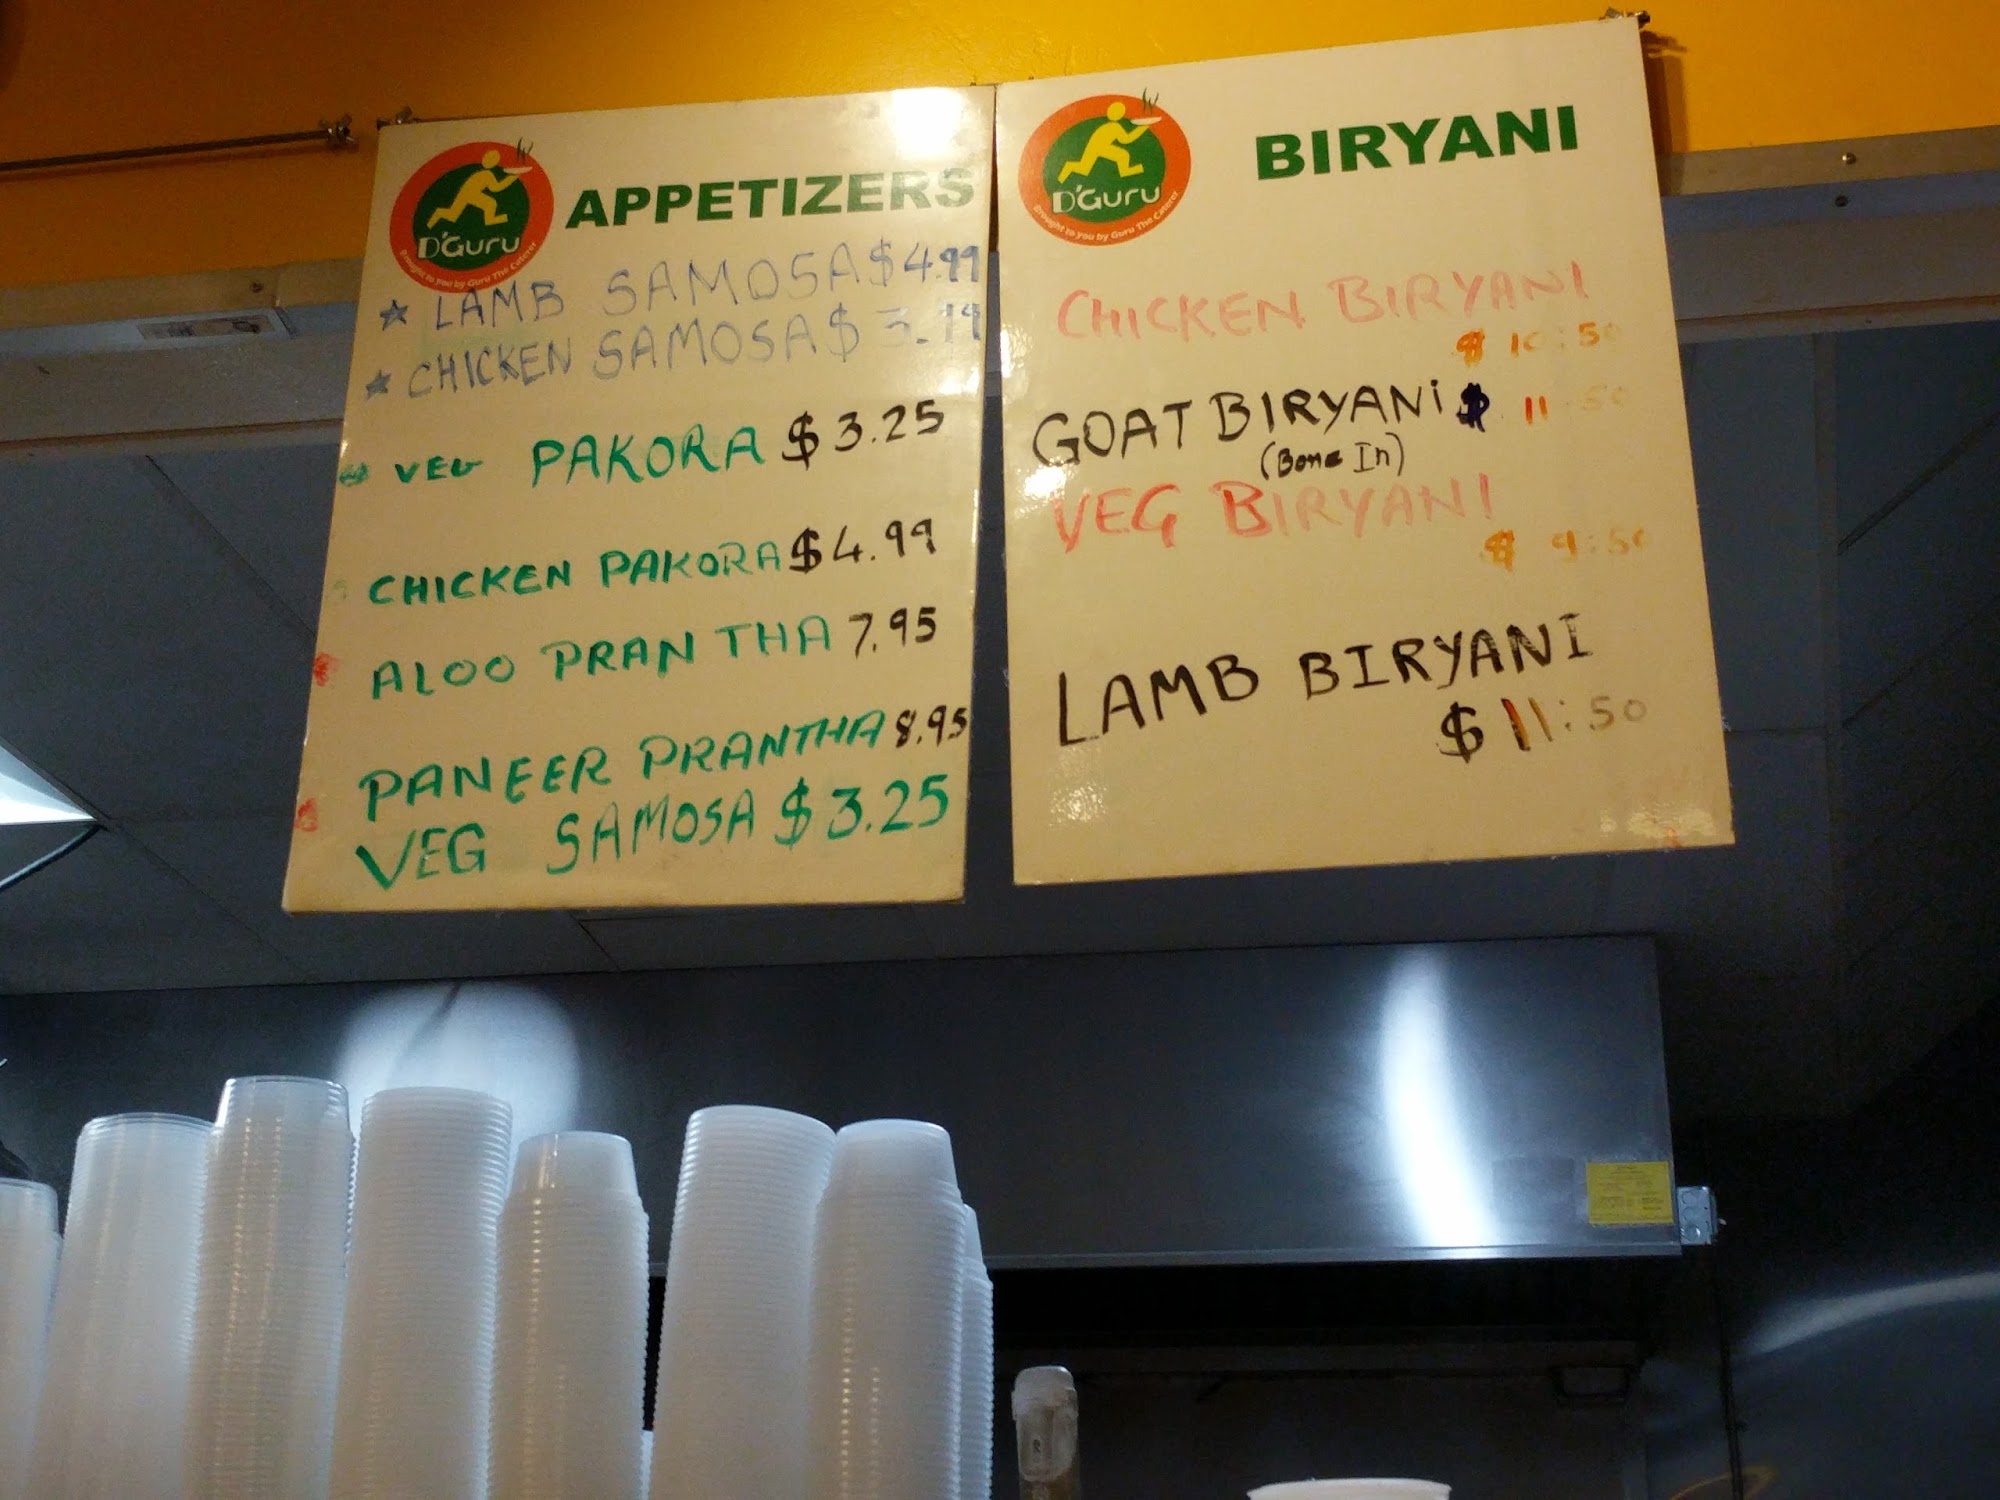 D'GURU
Brought to you by Guru The Caterer
APPETIZERS
LAMB SAMOSA $4.99
CHICKEN SAMOSA $3.99
VEG PAKORA $3.25
CHICKEN PAKORA $4.99
ALOO PRANTHA 7.95
PANEER PRANTHA 8.95
VEG SAMOSA $3.25
D'GURU
Brought to you by Guru The Caterer
BIRYANI
CHICKEN BIRYANI
$ 10:50
GOAT BIRYANI $ 11 50
(Bone In)
VEG BIRYANI
$ 9:50
LAMB BIRYANI
$ 11:50